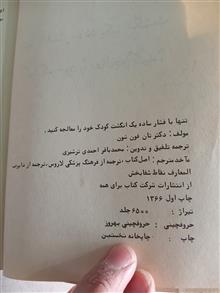 تنها با فشار ساده یک انگشت کودک خود را معالجه کنید.
مولف: دکتر تان فون نون
ترجمه تلفیق و تدوین: محمدباقر احمدی ترشیزی
مآخذ مترجم: اصل کتاب، ترجمه از فرهنگ پزشکی لاروس، ترجمه از دایره
المعارف نقاط شفابخش
از انتشارات شرکت کتاب برای همه
چاپ اول ۱۳۶۶
تیراژ : ۶۵۰۰ جلد
حروفچینی : حروفچینی بهروز
چاپ : چاپخانه نخستین